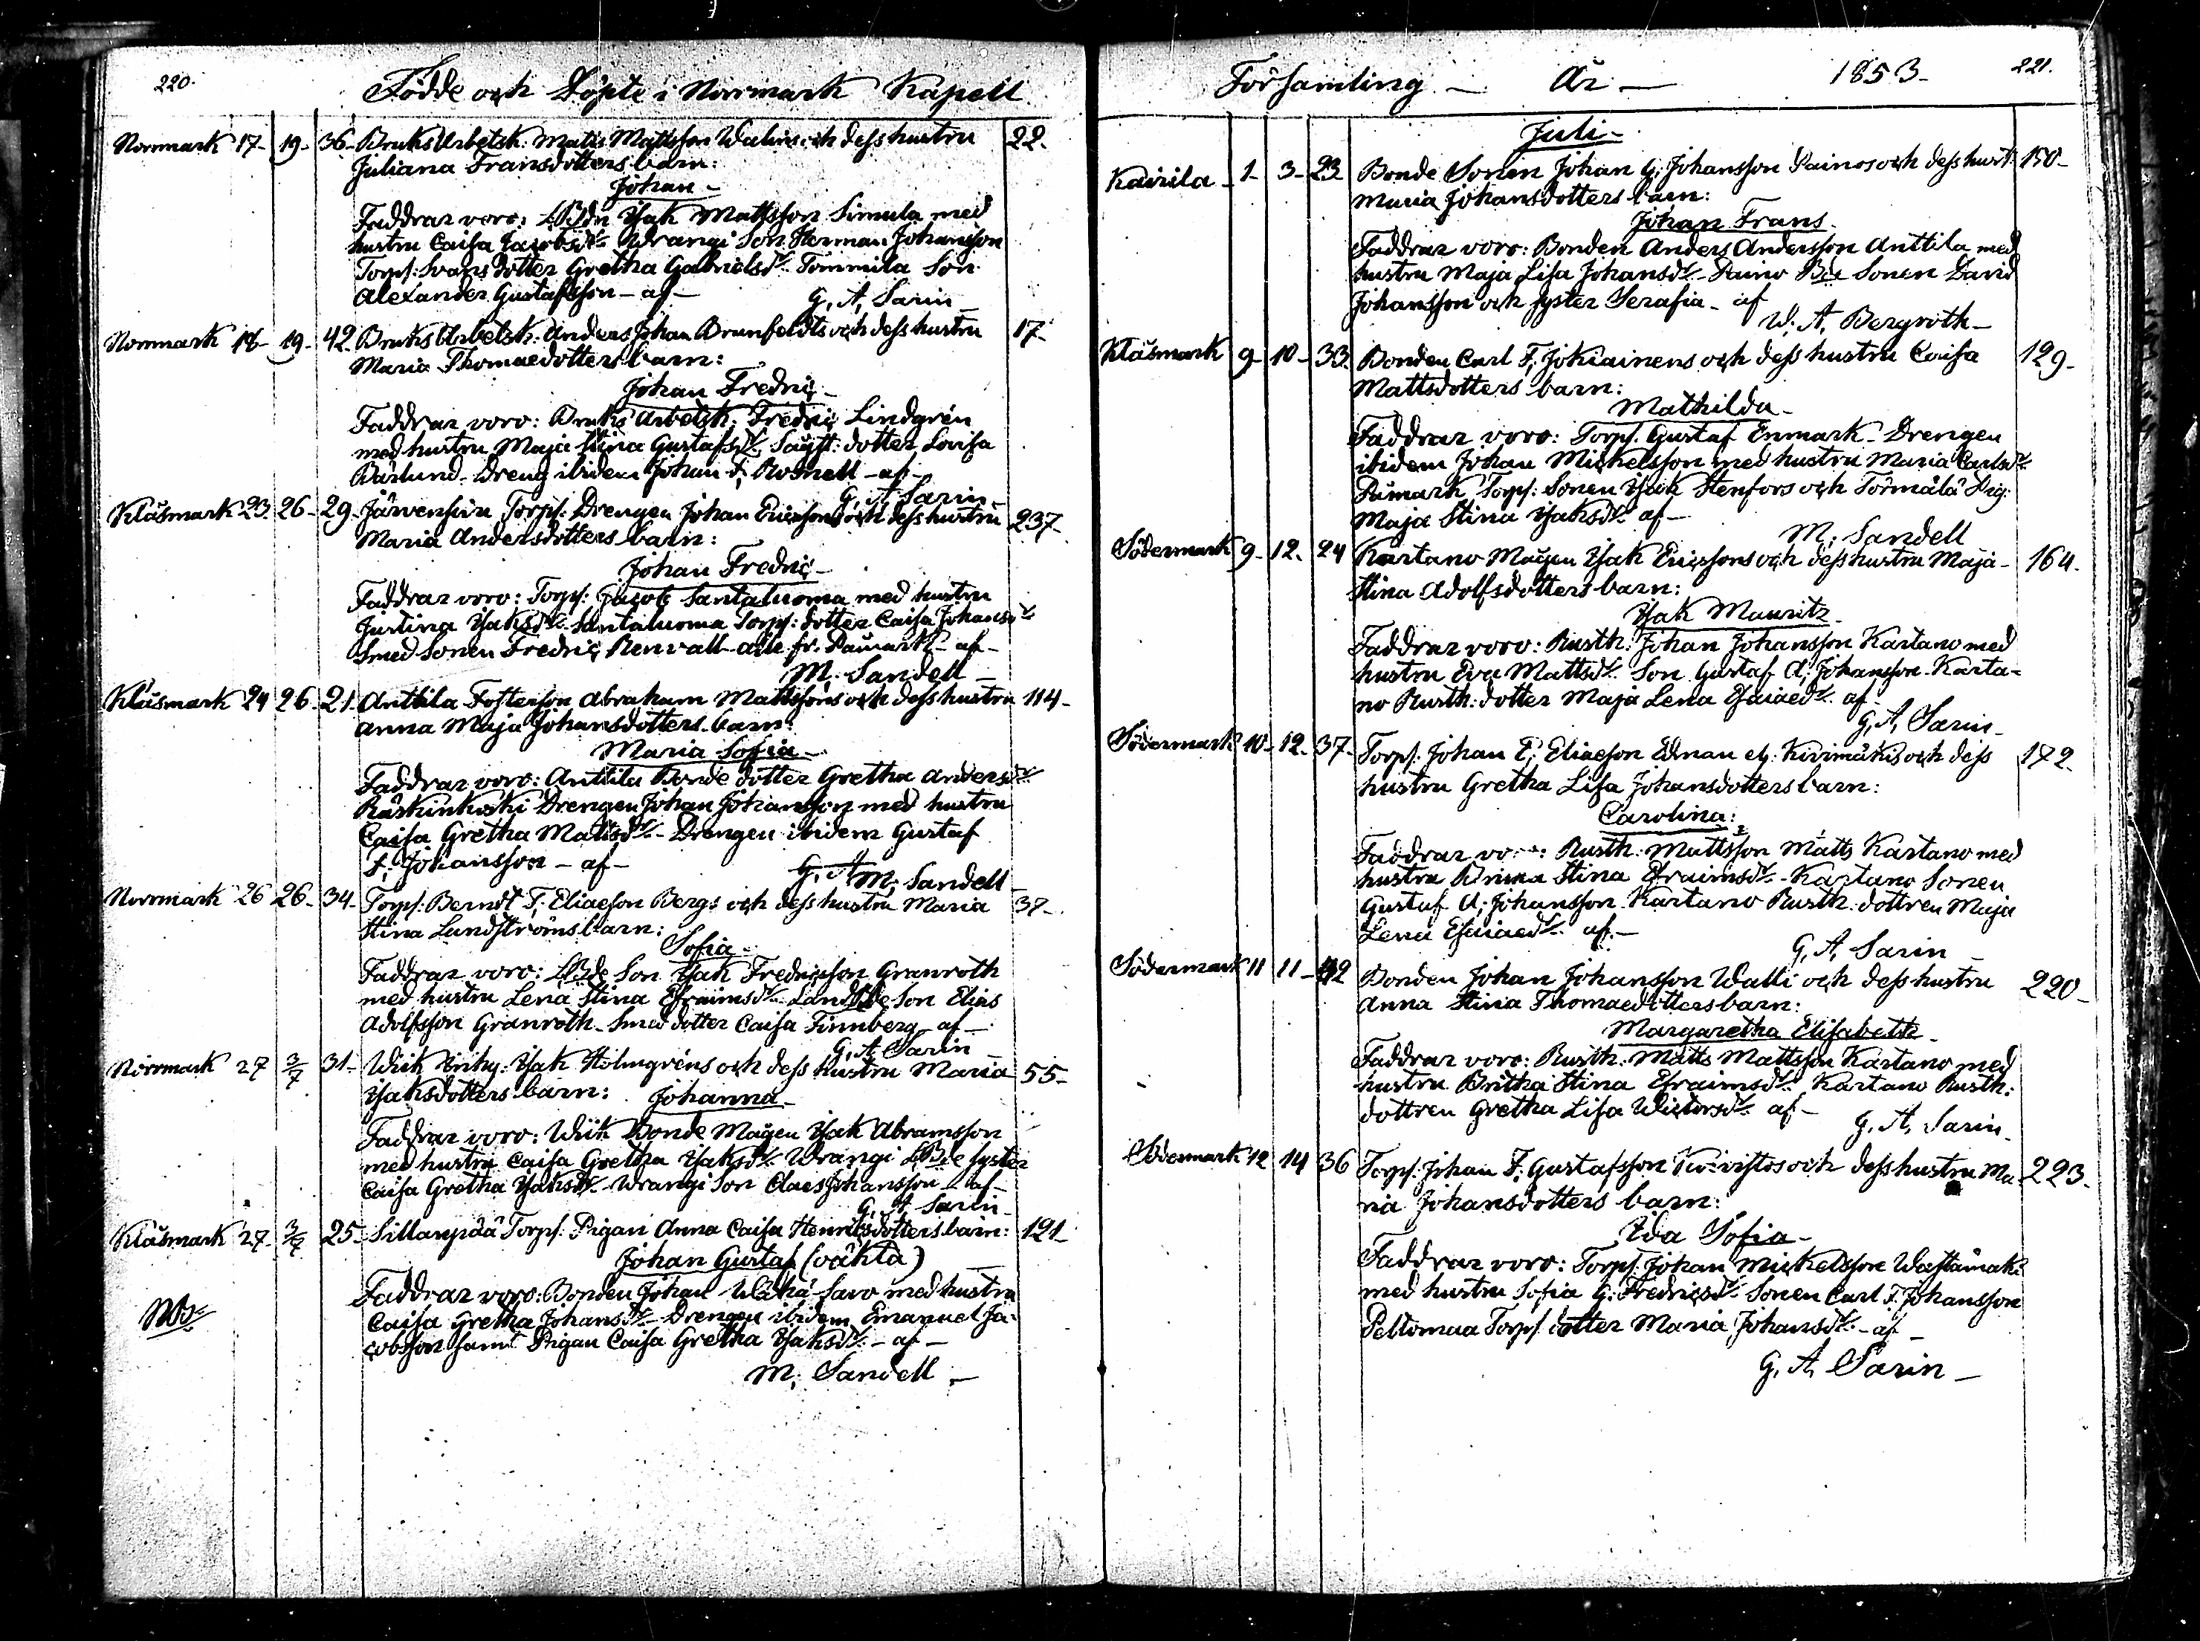 220.
Födde och Döpte i Norrmark Kapell
Norrmark 17- 19- 36- Bruks Arbetsk. Matts Mattsson Walins och dess hustru 22.
Juliana Fransdotters barn:
Johan-
Faddrar voro: LBdn Isak Mattsson Simula med
hustru Caisa Jacobsdr Wrangi Son Herman Johansson
Torps: Svans dotter Gretha Gabrielsdr. Tommila Son
Alexander Gustafsson - af - G. A. Sarin
Norrmark 18- 19- 42. Bruks Arbetsk. Anders Johan Brunfeldts och dess hustru 17-
Maria Thomaedotters barn:
Johan Fredric-
Faddrar voro: Bruks Arbetsk. Fredric Lindgrén
med hustru Maja Stina Gustafsdr, dotter Lovisa
Bärlund- Dreng ibidem Johan F. Rosnell - af -
G. A. Sarin
Kläsmark 23. 26- 29. Järvensivu Torps: Drengen Johan Ericssons och dess hustru 237-
Maria Andersdotters barn:
Johan Fredric-
Faddrar voro: Torps: Jacob Santaluoma med hustru
Justina Isaksdr. Santaluoma Torps: dotter Caisa Johansdr
Smed Sonen Fredric Renvall- alle fr. Påmark - af -
M. Sandell
Kläsmark 24 26- 21. Anttila Fosterson Abraham Mattssons och dess hustru 114-
Anna Maja Johansdotters barn:
Maria Sofia-
Faddrar voro: Anttila Bonde dotter Gretha Andersdr
Räskinkoski Drengen Johan Johansson med hustru
Caisa Gretha Mattsdr.- Drengen ibidem Gustaf
F. Johansson - af - G. A. M. Sandell
Norrmark 26 26- 34- Torps: Berndt F. Eliaeson Bergs och dess hustru Maria 37-
Stina Lundströms barn:
Sofia-
Faddrar voro: LBde Son Isak Fredricsson Granroth
med hustru Lena Stina Efraimsdr- LandBde Son Elias
Adolfsson Granroth- Smed dotter Caisa Finnberg - af -
G. A. Sarin
Norrmark 27 3/7 31- Wiik Isak Holmgréns och dess hustru Maria 55-
Isaksdotters barn: Johanna-
Faddrar voro: Wiik Bonde Magen Isak Abramsson
med hustru Caisa Gretha Isaksdr. Wrangi LBde syster
Caisa Gretha Isaksdr- Wrangi Son Claes Johansson - af -
G. A. Sarin
Kläsmark 27- 3/7 25- Sillanpää Torps: Pigan Anna Caisa Henriksdotters barn: 121-
Johan Gustaf (oäkta)
Faddrar voro: Bonden Johan Wähä-Savo med hustru
Caisa Gretha Johansdr- Drengen ibidem Emanuel Ja-
cobsson samt Pigan Caisa Gretha Isaksdr - af -
M. Sandell -
Församling - År - 1853- 221.
Juli-
Kairila- 1- 3- 23 Bonde Sonen Johan G. Johansson Painos och dess hust: 150-
Maria Johansdotters barn:
Johan Frans
Faddrar voro: Bonden Anders Andersson Anttila med
hustru Maja Lisa Johansdr- Paino Bde Sonen David
Johansson och syster Serafia- af
W. A. Bergroth-
Kläsmark 9- 10- 33. Bonden Carl F. Johiainens och dess hustru Caisa 129-
Mattsdotters barn:
Mathilda-
Faddrar voro: Torps: Gustaf Enmark- Drengen
ibidem Johan Mickelsson med hustru Maria Carlsdr
Påmark Torps: Sonen Isak Stenfors och Törmälä Pig:
Maja Stina Isaksdr af -
M. Sandell
Södermark 9- 12. 24 Kartano Magen Isak Ericssons och dess hustru Maja- 164-
Stina Adolfsdotters barn:
Isak Mauritz
Faddrar voro: Rusth: Johan Johansson Kartano med
hustru Eva Mattsdr. Son Gustaf A. Johansson- Karta-
no Rusth: dotter Maja Lena Esaiaedr. af -
G. A. Sarin-
Södermark 10- 12- 37- Torps: Johan E. Eliaeson Ednan el: Kivimäkis och dess 172-
hustru Gretha Lisa Johansdotters barn:
Carolina:
Faddrar voro: Rusth: Mattsson Matts Kartano med
hustru Stina Efraimsdr- Kartano Sonen
Gustaf A. Johansson. Kartano Rusth: dottren Maja
Lena Esaiaedr. af -
G. A. Sarin
Södermark 11 11- 42 Bonden Johan Johansson Walli och dess hustru 220-
Anna Stina Thomaedotters barn:
Margaretha Elisabeth
Faddrar voro: Rusth: Matts Mattsson Kartano med
hustru Britha Stina Efraimsdr. Kartano Rusth:
dottren Gretha Lisa Wictorsdr. af -
G. A. Sarin-
Södermark 12 14 36 Torps: Johan F. Gustafsson Koivistos och dess hustru Ma- 223-
ria Johansdotters barn:
Ida Sofia-
Faddrar voro: Torps: Johan Mickelsson Wästämäki
med hustru Sofia G. Fredricsdr. Sonen Carl F. Johansson
Peltomaa Torps: dotter Maria Johansdr - af -
G. A. Sarin -